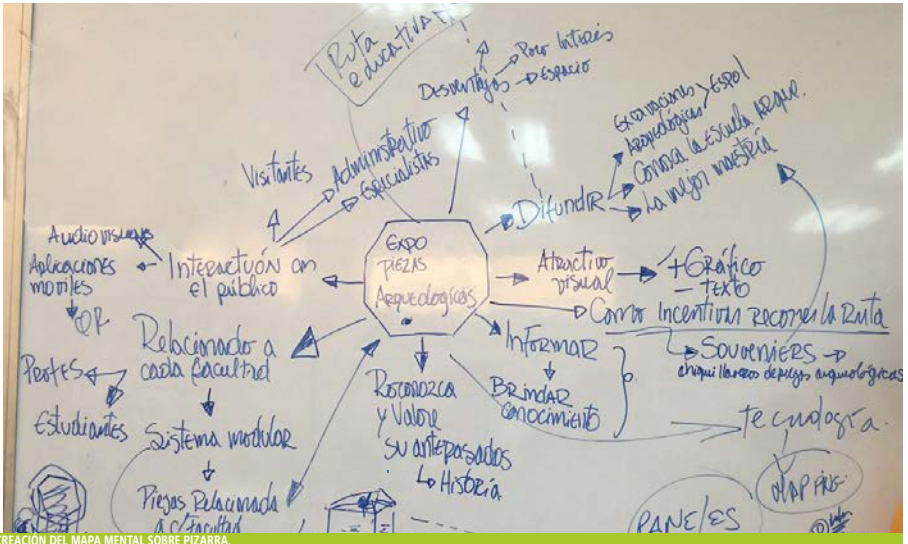 Ruta
educativa
Desventajas
Poco Interés
Espacio
Visitantes
Administrativo
Especialistas
Difundir
Excavaciones
Arqueológicas
ESPOL
Conozca la Escuela Arque.
La mejor maestría
Audiovisuales
Aplicaciones
moviles
QR
Interactuón con
el público
EXPO
PIEZAS
Arqueologicas
Atractivo
visual
+ Gráfico
- TEXTO
Como Incentivar recorrer la Ruta
Souveniers
chiqui llaveros de piezas arqueológicas
Informar
Brindar
conocimiento
Relacionado a
cada facultad
Profes
Estudiantes
Sistema modular
Piezas Relacionada
a c/facultad
Roconozca
y Valore
su antepasados
Historia
Tecnología.
MAPPING
PANELES
CREACIÓN DEL MAPA MENTAL SOBRE PIZARRA.